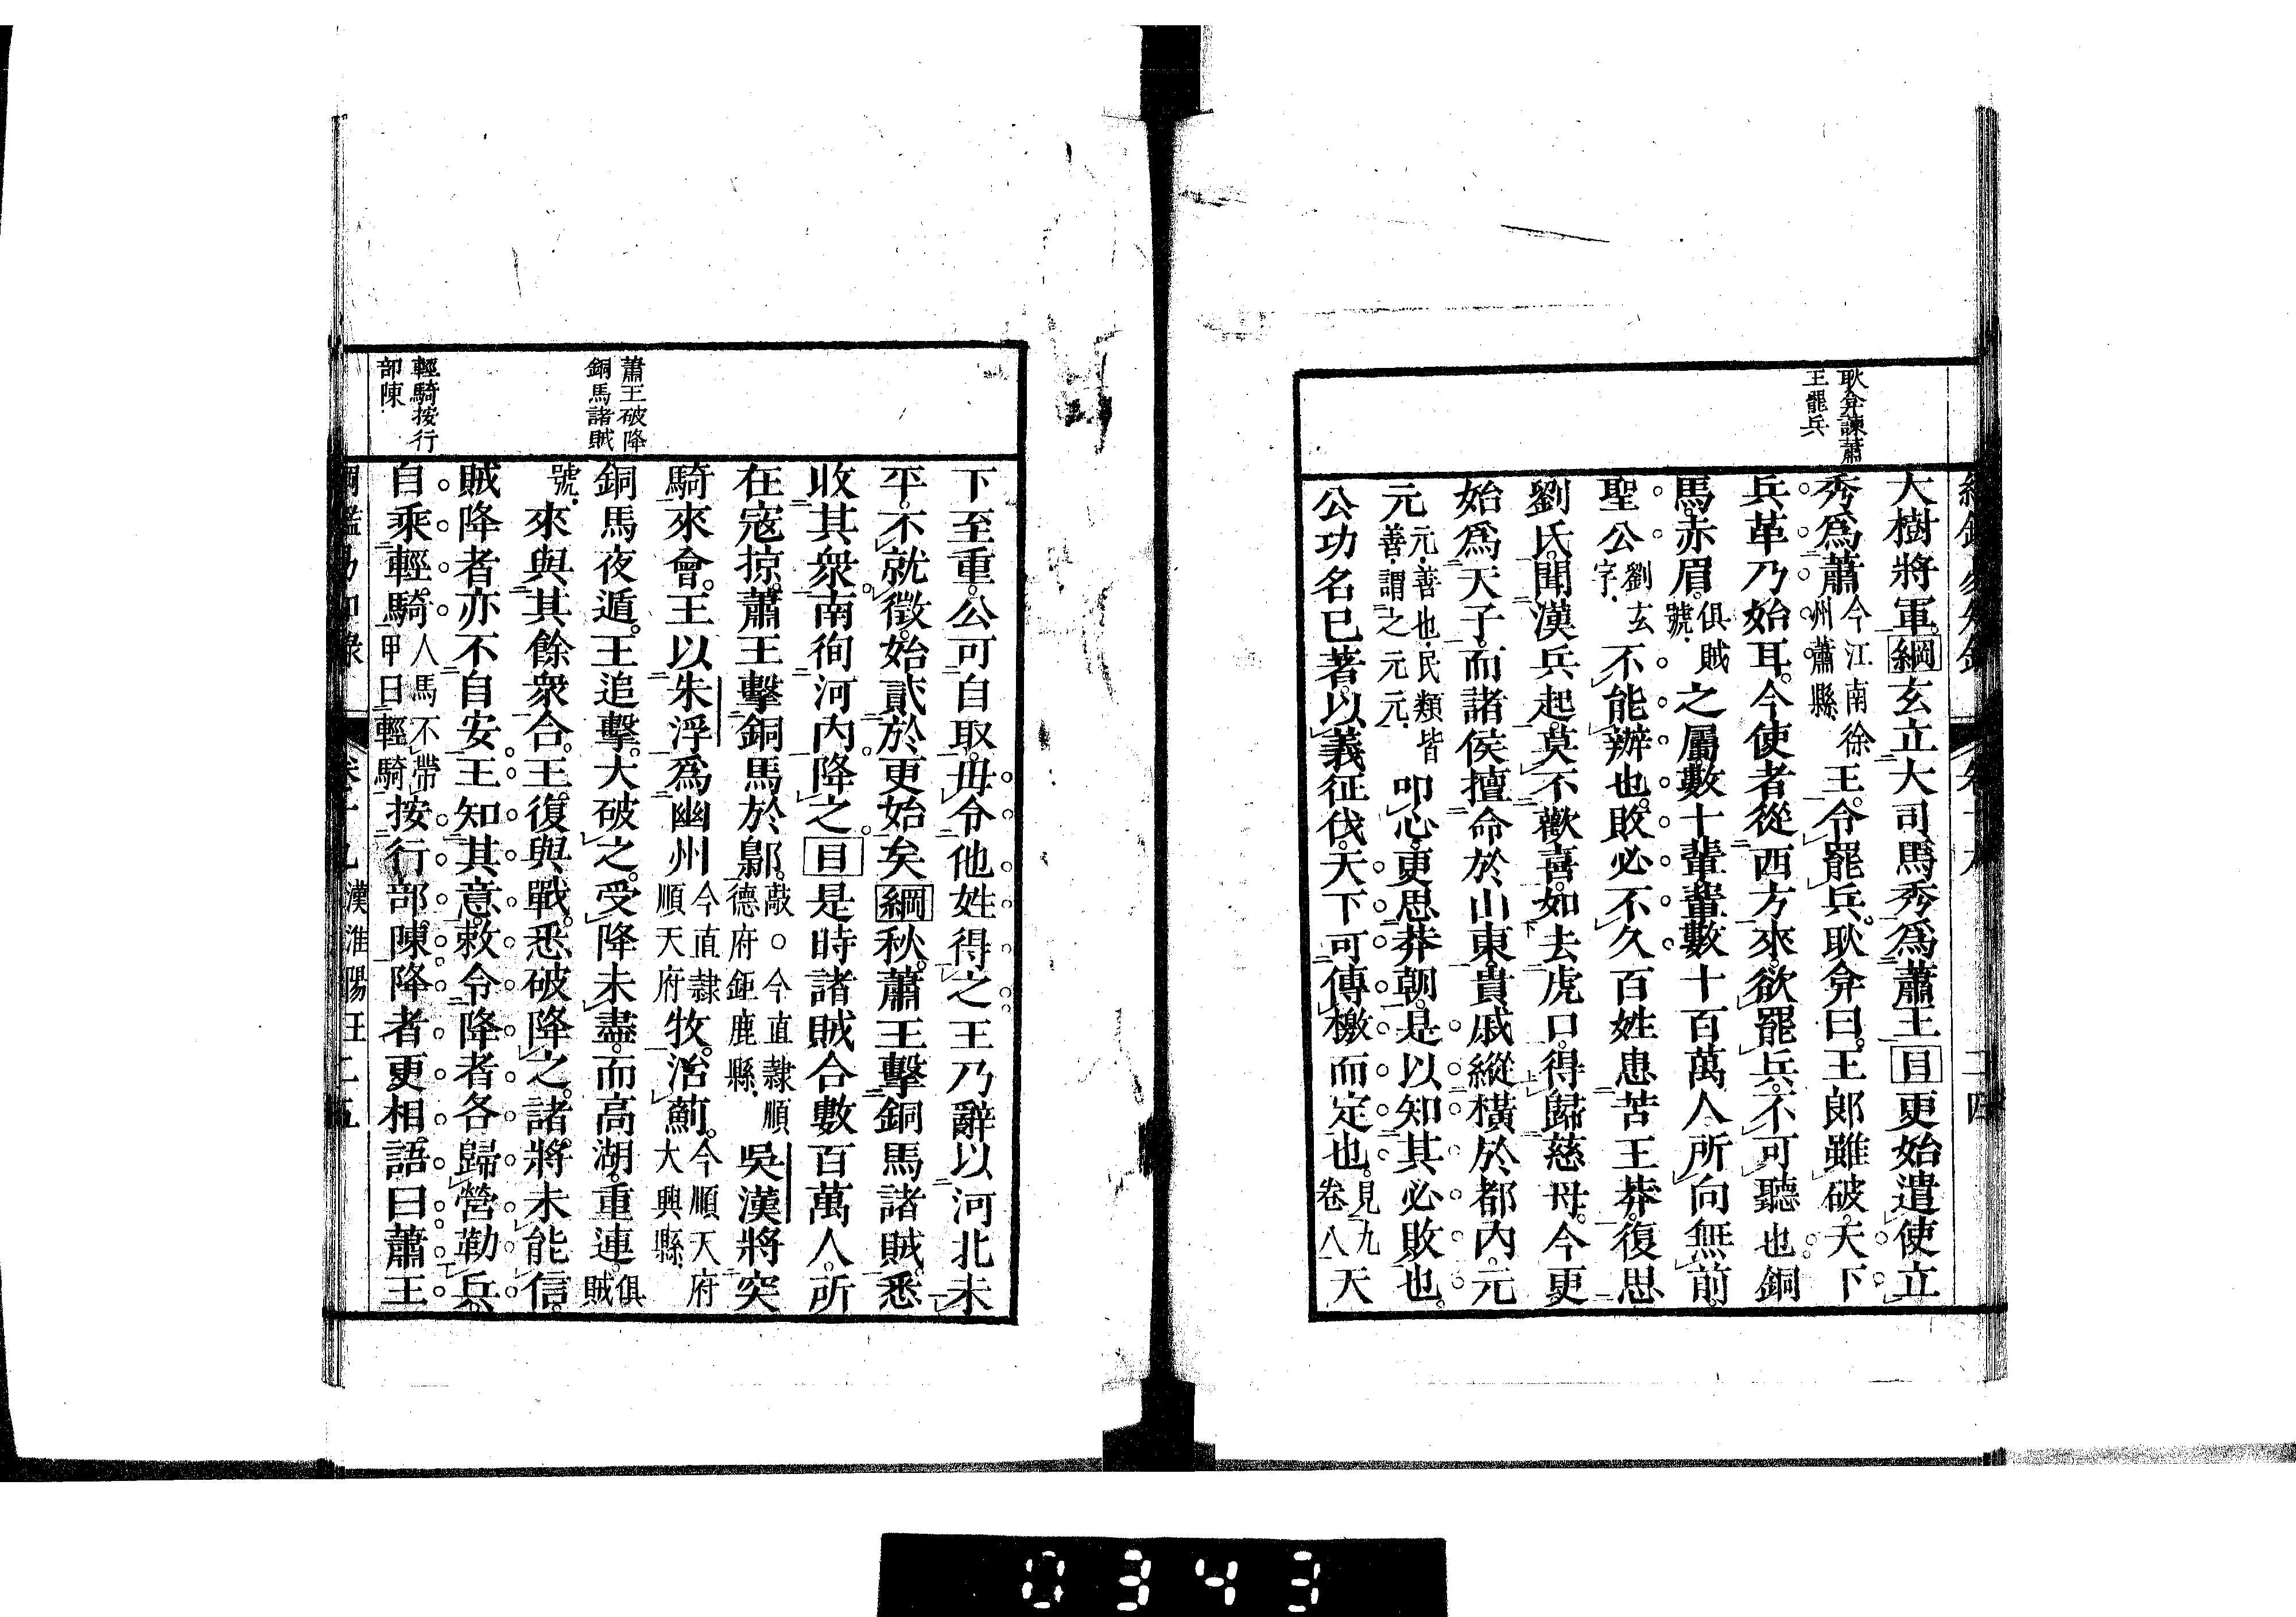 耿弇諫蕭
王罷兵
大樹將軍。綱玄立大司馬秀爲蕭王目更始遣使立
秀爲蕭今江南徐州蕭縣王。令罷兵。耿弇曰。王郎雖破。天下
兵革乃始耳。今使者從西方來。欲罷兵。不可聽也銅
馬。赤眉。俱賊號。之屬數十輩。輩數十百萬人。所向無前。
聖公劉玄字。不能辦也。敗必不久百姓患苦王莽。復思
劉氏。聞漢兵起。莫不歡喜。如去虎口。得歸慈母。今更
始爲天子。而諸侯擅命於山東。貴戚縱橫於都內。元
元元善也。民類皆善。謂之元元。叩心。更思莽朝。是以知其必敗也。
公功名已著。以義征伐。天下可傳檄而定也。見九卷八天
蕭王破降
銅馬諸賊
輕騎按行
部陳
下至重。公可自取。毋令他姓得之王乃辭以河北未
平。不就徵。始貳於更始矣綱秋。蕭王擊銅馬諸賊。悉
收其衆。南徇河內。降之。目是時諸賊合數百萬人。所
在寇掠。蕭王擊銅馬於鄡。敲○今直隷順德府鉅鹿縣。吳漢將突
騎來會。王以朱浮爲幽州今直隷順天府牧。治薊。今順天府大興縣。
銅馬夜遁。王追擊。大破之。受降未盡。而高湖。重連。俱賊
號。來與其餘衆合。王復與戰。悉破降之。諸將未能信。
賊降者亦不自安。王知其意。敕令降者各歸營勒兵。
自乘輕騎人馬不帶甲曰輕騎按行部陳。降者更相語曰蕭王
漢淮陽王二五